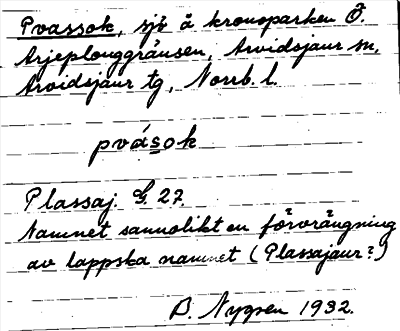 Pvassok, sjö å kronoparken Ö.
Arjeplouggränsen, Arvidsjaur sn,
Arvidsjaur tg, Norrb. l.
pvások
Plassaj. G. 27.
Namnet sannolikt en förvrängning
av lappska namnet (Plassajaur?)
B. Nygren 1932.